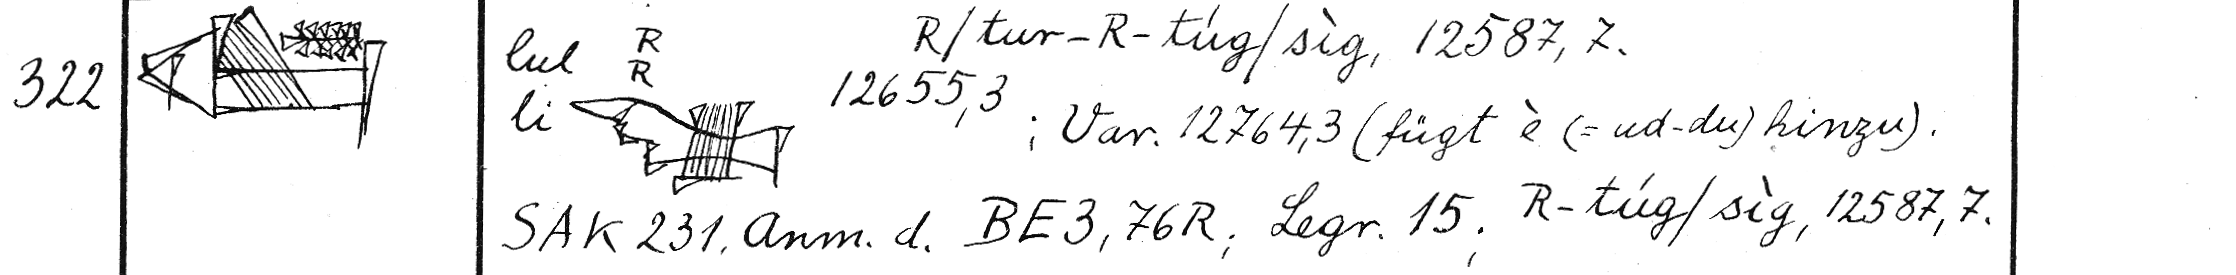 322 lul R R/tur-R-túg/sìg, 12587, 7.
li R 12655,3 ; Var. 12764,3 (fügt è (= ud-du) hinzu).
SAK 231. Anm. d. BE3, 76R; Legr. 15; R-túg/sìg, 12587, 7.